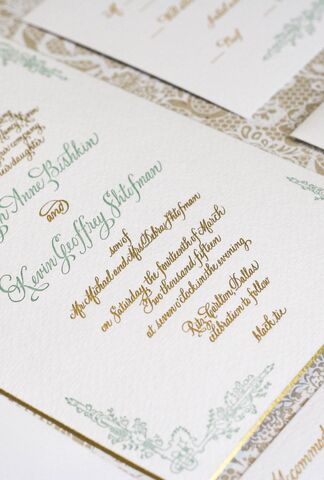 our company
daughter
Anne Bishkin
and
Kevin Geoffrey Shtofman
son of
Mr. Michael and Mrs. Debra Shtofman
on Saturday, the fourteenth of March
Two thousand fifteen
at seven o'clock in the evening
Ritz Carlton, Dallas
celebration to follow
black tie